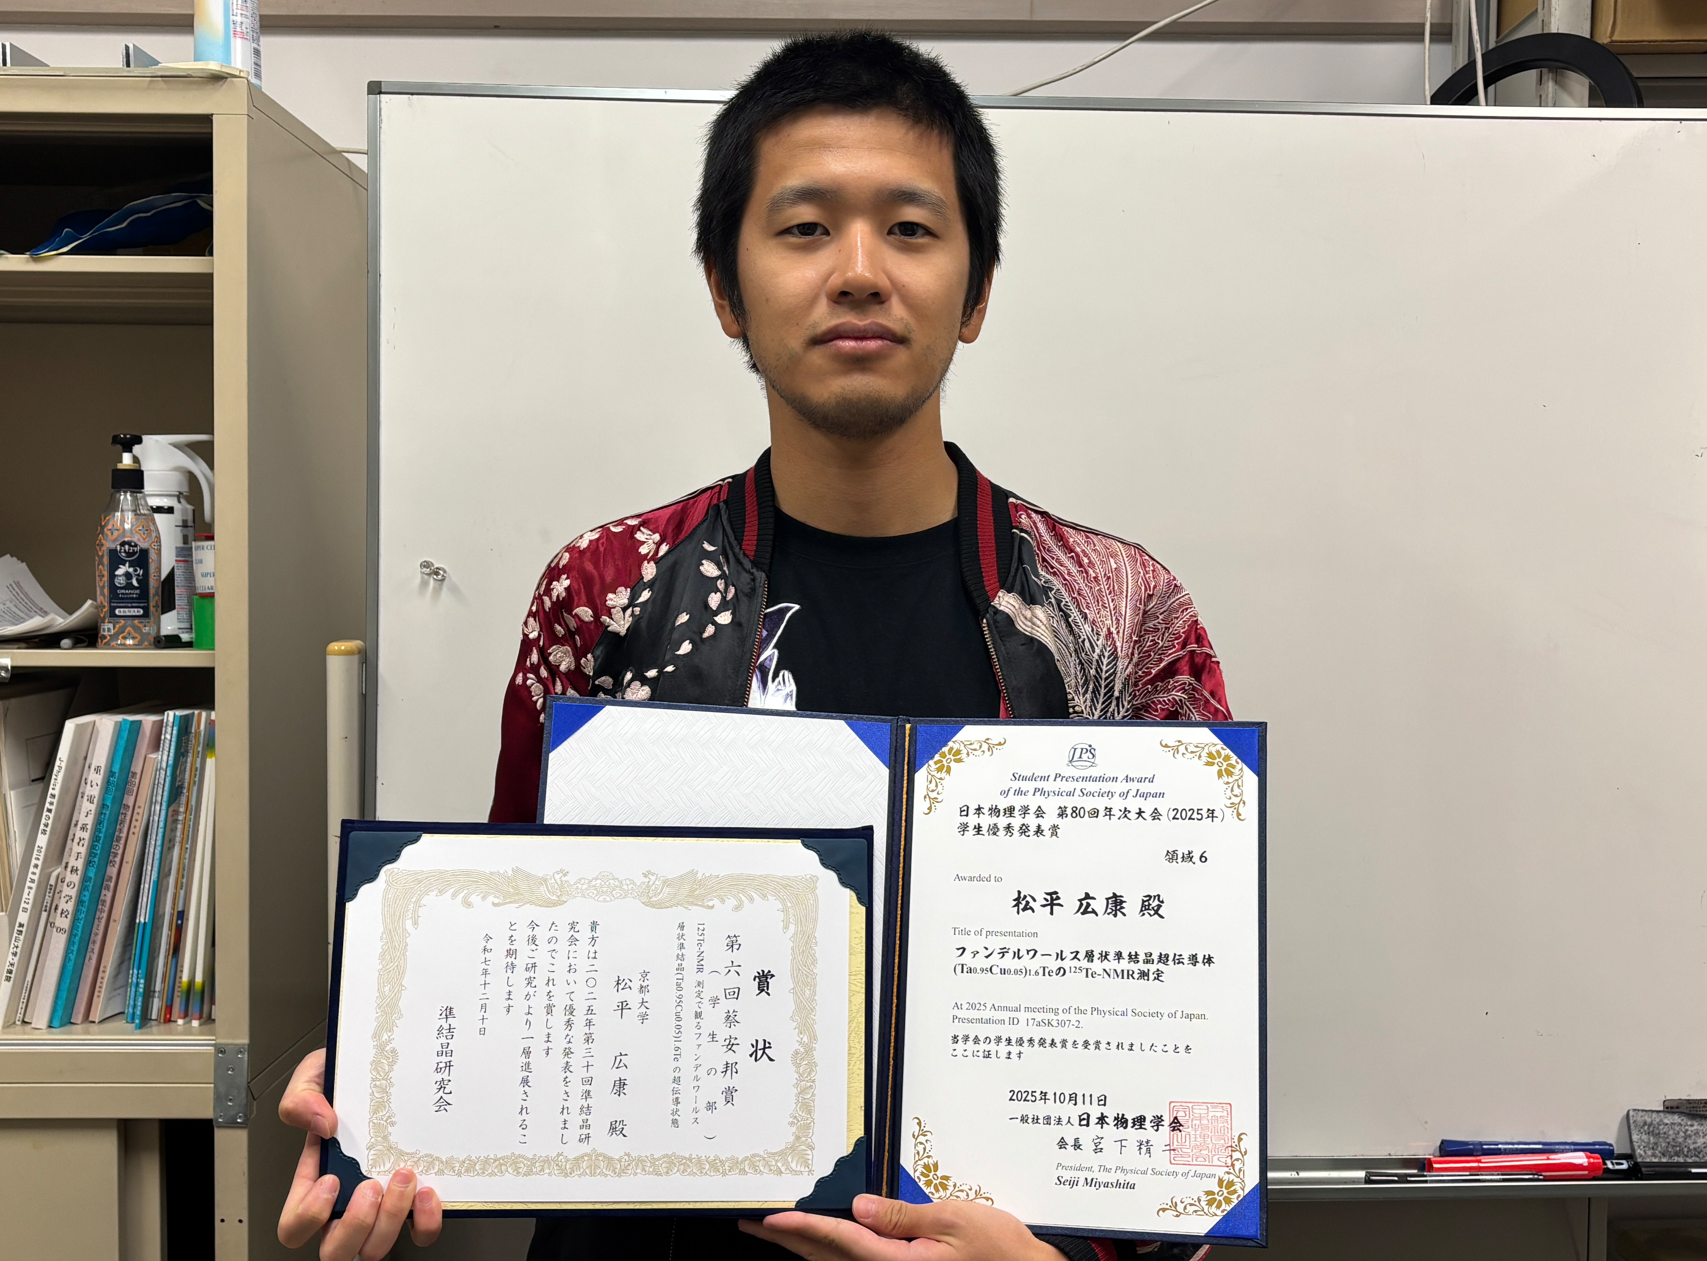 賞状
第六回蔡安邦賞
(学生の部)
125Te-NMR 測定で観るファンデルワールス
層状準結晶(Ta0.95Cu0.05)1.6Te の超伝導状態
京都大学
松平 広康 殿
貴方は二〇二五年第三十回準結晶研
究会において優秀な発表をされまし
たのでこれを賞します
今後ご研究がより一層進展されるこ
とを期待します
令和七年十二月十日
準結晶研究会
JPS
Student Presentation Award
of the Physical Society of Japan
日本物理学会 第80回年次大会(2025年)
学生優秀発表賞
領域6
Awarded to
松平 広康 殿
Title of presentation
ファンデルワールス層状準結晶超伝導体
(Ta0.95Cu0.05)1.6Teの125Te-NMR測定
At 2025 Annual meeting of the Physical Society of Japan.
Presentation ID 17aSK307-2.
当学会の学生優秀発表賞を受賞されましたことを
ここに証します
2025年10月11日
一般社団法人日本物理学会
会長 宮下精二
President, The Physical Society of Japan
Seiji Miyashita
ORANGE
重い電子系若手秋の学校